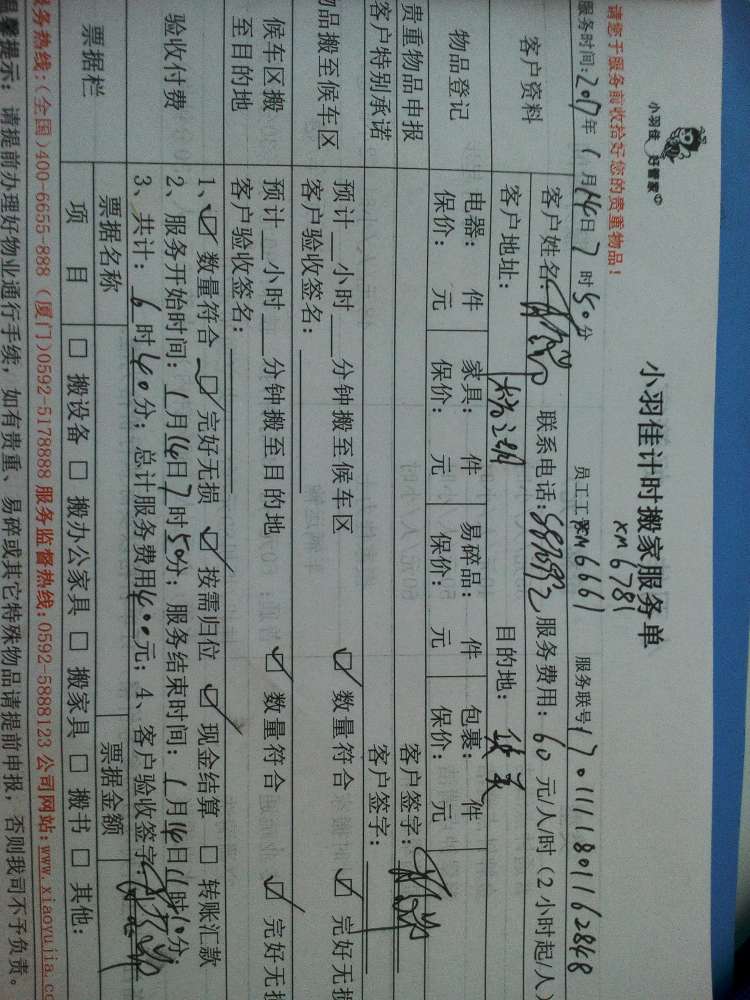 小羽佳 好管家
请您于服务前收拾好您的贵重物品!
小羽佳计时搬家服务单
xm6781
服务时间:2017年1月14日7时50分 员工工 xm6661 服务联号170111180116 2848
客户资料 客户姓名: 联系电话: 服务费用:60元/人/时(2小时起/人)
客户地址: 目的地:
物品登记 电器: 件 家具: 件 易碎品: 件 包裹: 件
保价: 元 保价: 元 保价: 元 保价: 元
贵重物品申报 客户签字:
客户特别承诺 客户签字:
物品搬至候车区 预计__小时__分钟搬至候车区 数量符合 完好无损
客户验收签名:
候车区搬至目的地 预计__小时__分钟搬至目的地 数量符合 完好无损
客户验收签名:
验收付费 1、数量符合 完好无损 按需归位 现金结算 转账汇款
2、服务开始时间:1月14日7时50分;服务结束时间:1月14日11时10分;
3、共计:6时40分;总计服务费用400元;4、客户验收签字:
票据栏 票据名称 票据金额
项目 搬设备 搬办公家具 搬家具 搬书 其他:
服务热线:(全国)400-6655-888 (厦门)0592-5178888 服务监督热线:0592-5888123 公司网站:www.xiaoyujia.co
温馨提示:请提前办理好物业通行手续,如有贵重、易碎或其它特殊物品请提前申报,否则我司不予负责。